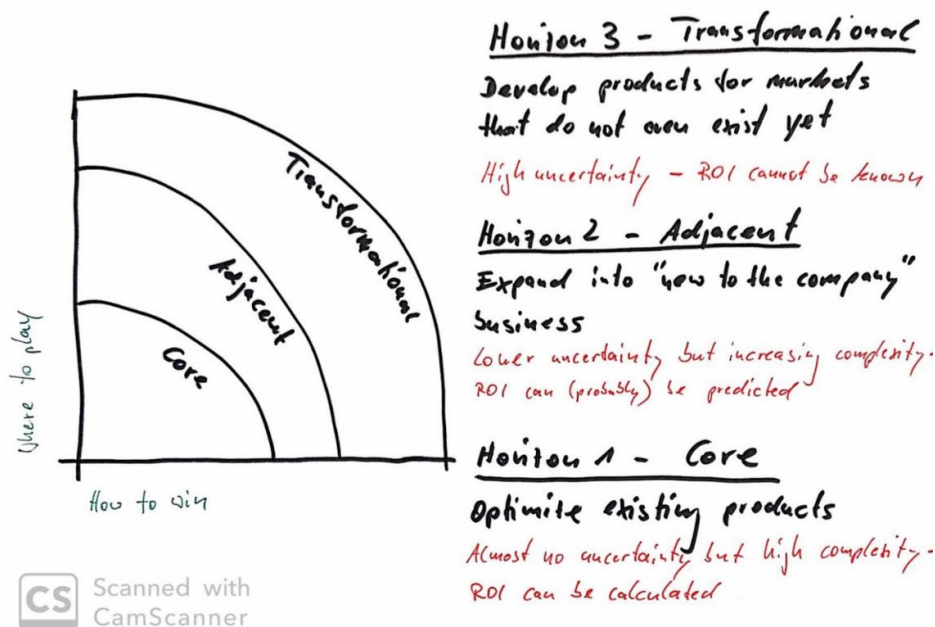 Where to play
Transformational
Adjacent
Core
How to win
Horizon 3 - Transformational
Develop products for markets
that do not even exist yet
High uncertainty - ROI cannot be known
Horizon 2 - Adjacent
Expand into "new to the company"
business
Lower uncertainty but increasing complexity -
ROI can (probably) be predicted
Horizon 1 - Core
Optimize existing products
Almost no uncertainty but high complexity -
ROI can be calculated
CS Scanned with
CamScanner